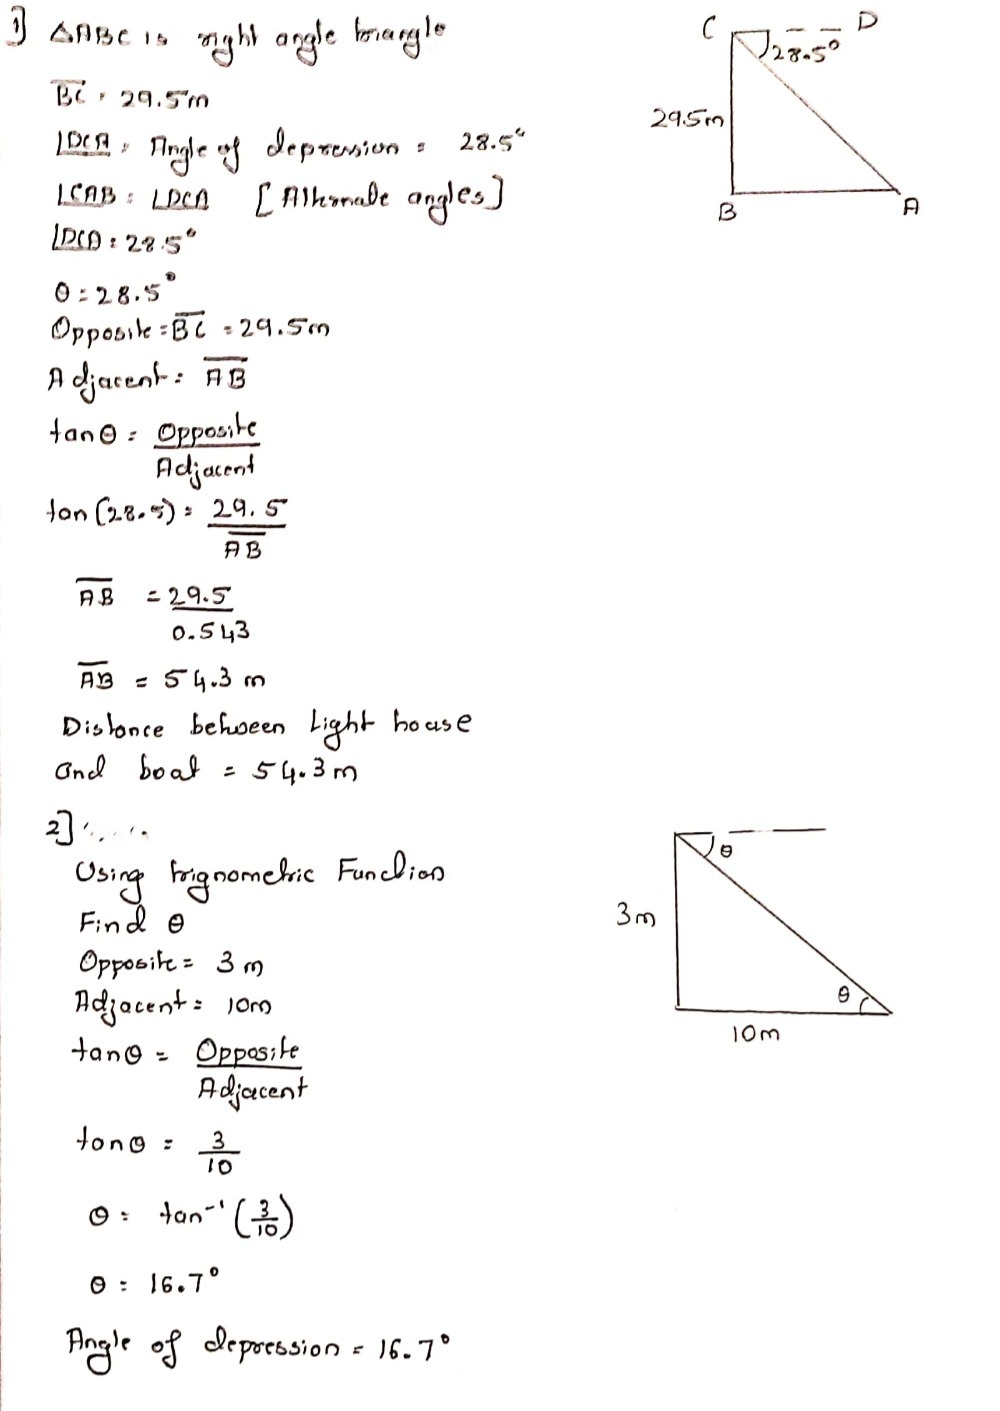 1] △ABC is right angle triangle
C D
28.5°
B̅C̅ = 29.5m
29.5m
∠DCA = Angle of depression = 28.5°
∠CAB = ∠DCA [Alternate angles]
B A
∠DCA = 28.5°
θ = 28.5°
Opposite = B̅C̅ = 29.5m
Adjacent = A̅B̅
tanθ = Opposite
Adjacent
tan(28.5) = 29.5
A̅B̅
A̅B̅ = 29.5
0.543
A̅B̅ = 54.3 m
Distance between Light house
and boat = 54.3m
2]
θ
Using trignometric Function
3m
Find θ
Opposite = 3 m
Adjacent = 10m
θ
10m
tanθ = Opposite
Adjacent
tanθ = 3
10
θ = tan⁻¹(3/10)
θ = 16.7°
Angle of depression = 16.7°